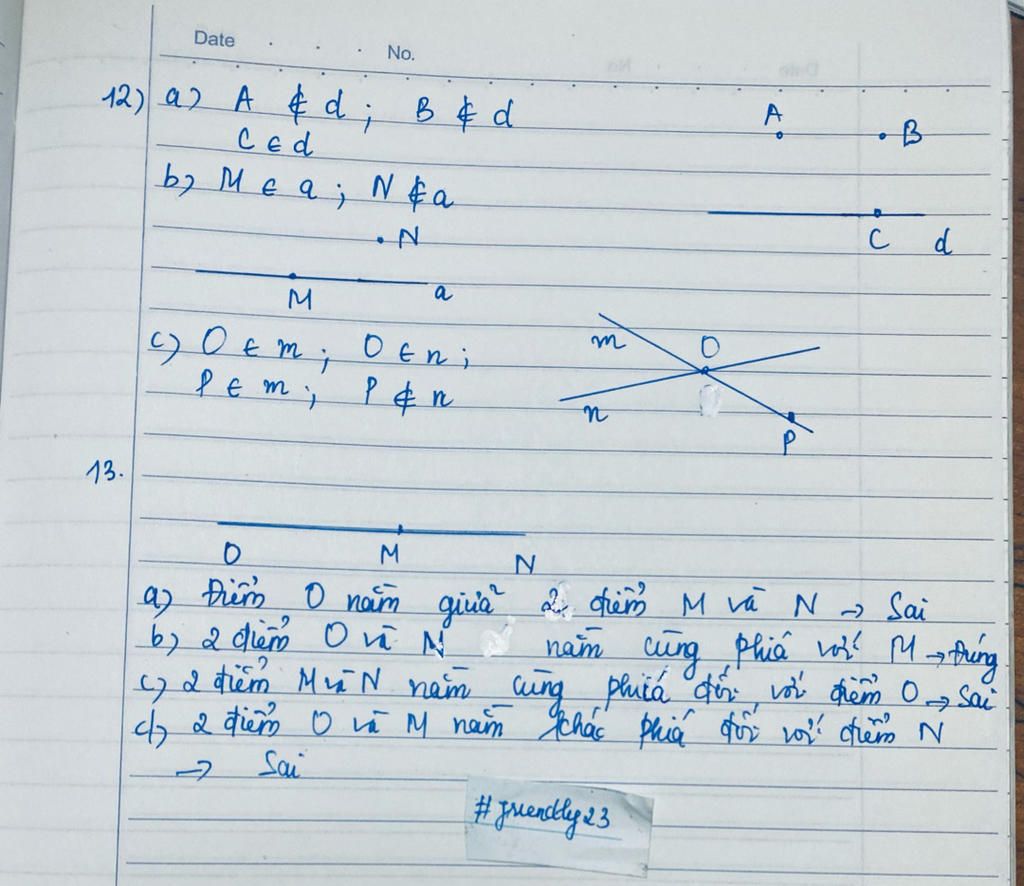 Date . . . No.
12) a) A ∉ d ; B ∉ d
C ∈ d
A
B
C d
b) M ∈ a ; N ∉ a
N
M a
c) O ∈ m ; O ∈ n ;
P ∈ m ; P ∉ n
m O
n
P
13.
O M N
a) Điểm O nằm giữa 2 điểm M và N → Sai
b) 2 điểm O và N nằm cùng phía với M → Đúng
c) 2 điểm M và N nằm cùng phiá đối với điểm O → Sai
d) 2 điểm O và M nằm khác phía đối với điểm N
→ Sai
#friendly23